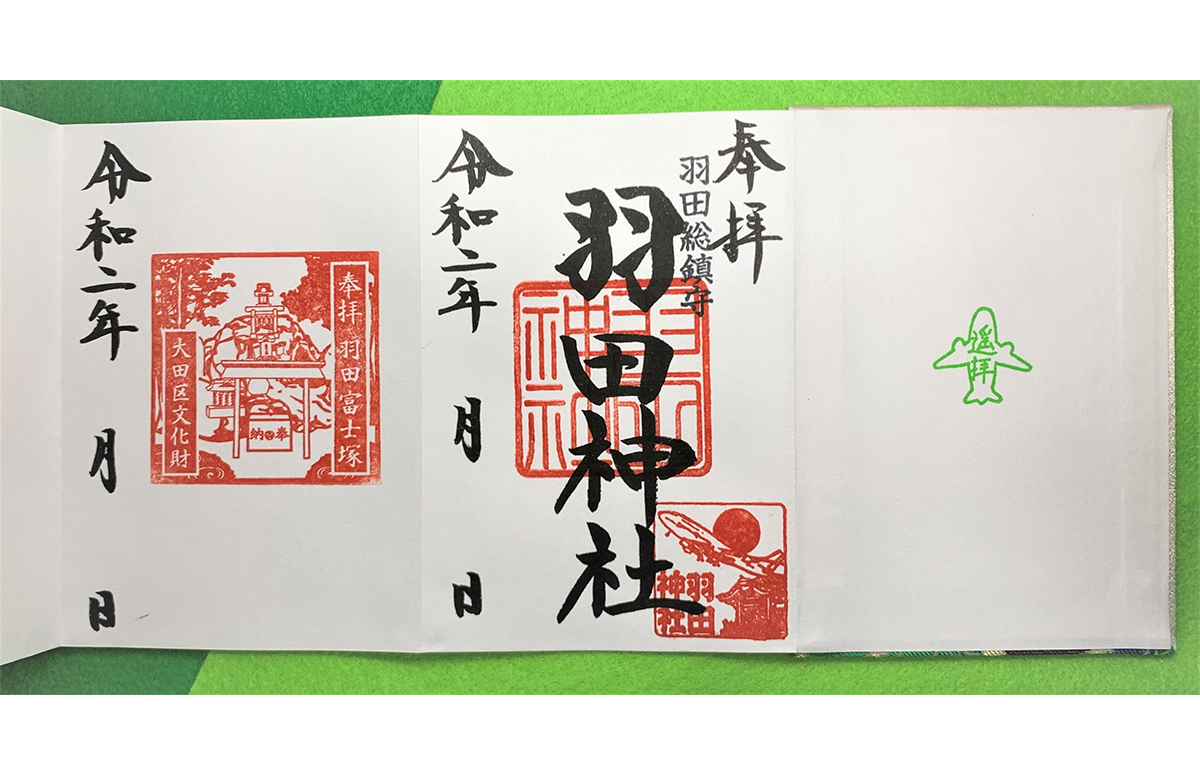 遥拝
奉拝
羽田総鎮守
羽田神社
羽田
神社
令和二年 月 日
奉拝 羽田富士塚
奉納
大田区文化財
令和二年 月 日